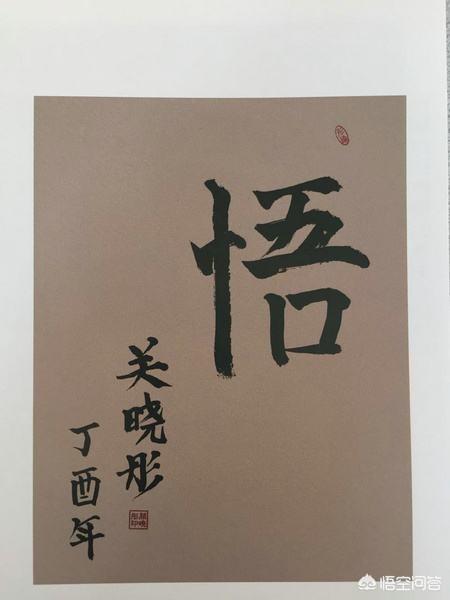 悟
关晓彤
丁酉年
悟空问答